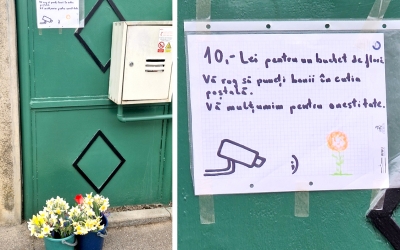 10,- Lei pentru un buchet de flori.
Vă rog să puneți banii în cutia
poștală.
Vă mulțumim pentru onestitate.
:)